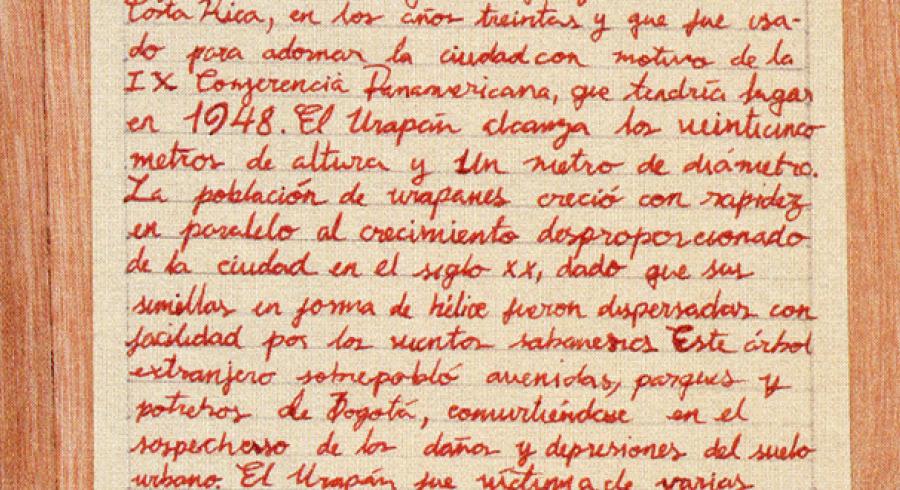 Costa Rica, en los años treintas y que fue usa-
do para adornar la ciudad con motivo de la
IX Conferencia Panamericana, que tendría lugar
en 1948. El Urapán alcanza los veinticinco
metros de altura y un metro de diámetro.
La población de urapanes creció con rapidez
en paralelo al crecimiento desproporcionado
de la ciudad en el siglo XX, dado que sus
semillas en forma de hélice fueron dispersadas con
facilidad por los vientos sabaneros Este árbol
extranjero sobrepobló avenidas, parques y
potreros de Bogotá, convirtiéndose en el
sospechoso de los daños y depresiones del suelo
urbano. El Urapán fue víctima de varias